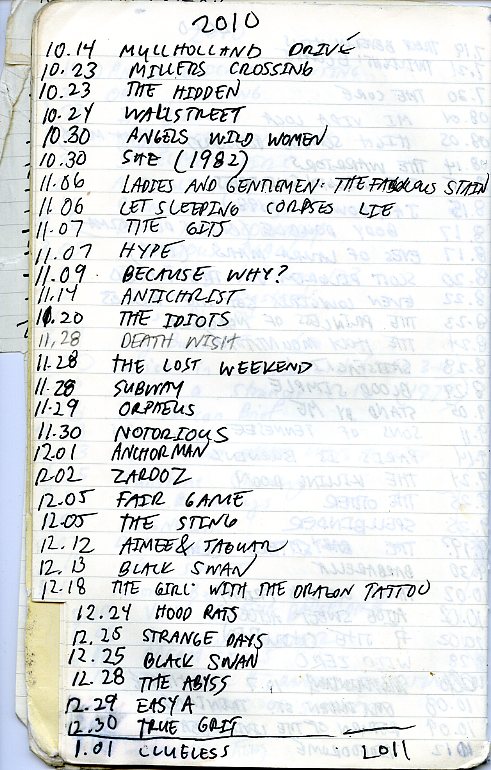 2010
10.14 MULLHOLLAND DRIVE
10.23 MILLERS CROSSING
10.23 THE HIDDEN
10.24 WALLSTREET
10.30 ANGELS WILD WOMEN
10.30 SHE (1982)
11.06 LADIES AND GENTLEMEN: THE FABULOUS STAIN
11.06 LET SLEEPING CORPSES LIE
11.07 THE GITS
11.07 HYPE
11.09 BECAUSE WHY?
11.14 ANTICHRIST
11.20 THE IDIOTS
11.28 DEATH WISH
11.28 THE LOST WEEKEND
11.28 SUBWAY
11.29 ORPHEUS
11.30 NOTORIOUS
12.01 ANCHORMAN
12.02 ZARDOZ
12.05 FAIR GAME
12.05 THE STING
12.12 AIMEE & JAGUAR
12.13 BLACK SWAN
12.18 THE GIRL WITH THE DRAGON TATTOO
12.24 HOOD RATS
12.25 STRANGE DAYS
12.25 BLACK SWAN
12.28 THE ABYSS
12.29 EASY A
12.30 TRUE GRIT
1.01 CLUELESS 2011